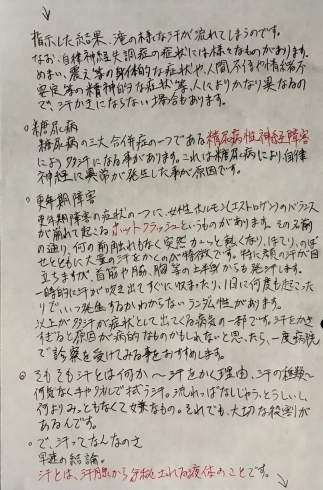 指示した結果、滝の様な汗が流れてしまうのです。
なお、自律神経失調症の症状には様々なものがあります。
めまい、震え等の身体的な症状や、人間不信や情緒不
安定等の精神的な症状等、人によりかなり異なるの
で、汗かきにならない場合もあります。
○糖尿病
糖尿病の三大合併症の一つである糖尿病性神経障害
により多汗になる事があります。これは糖尿病により自律
神経に異常が発生した事が原因です。
○更年期障害
更年期障害の症状の一つに、女性ホルモン(エストロゲン)のバランス
が崩れて起こるホットフラッシュというものがあります。その名前
の通り、何の前触れもなく突然カーッと熱くなり、ほてり、のぼ
せとともに大量の汗をかくのが特徴です。特に顔の汗が目
立ちますが、首筋や脇、胸等の上半身からも発汗します。
一時的に汗が吹き出てすぐに収まったり、1日に何度も起こった
りで、いつ発生するかわからないランダム性があります。
以上が多汗が症状として出てくる病気の一部です。汗をかき
すぎると原因が病的なものかもしれないと思ったら、一度病院
で診察を受けてみる事をおすすめします。
◎そもそも汗とは何か〜汗をかく理由、汗の種類〜
何気なくチャタカルで拭う汗。流れっぱなしじゃうっとうしいし、
何よりみっともなくて嫌なもの。それでも、大切な役割が
あるんです。
○で、汗ってなんなのさ
早速の結論。
汗とは、汗腺から分泌される液体のことです。